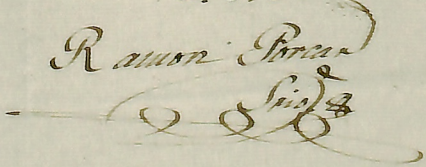 Ramon Porcar
Srio